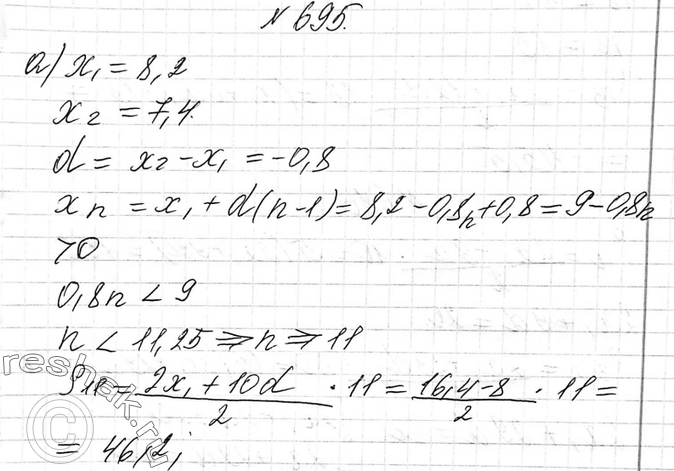 № 695.
а) x₁ = 8,2
x₂ = 7,4.
d = x₂ - x₁ = -0,8
xₙ = x₁ + d(n-1) = 8,2 - 0,8n + 0,8 = 9 - 0,8n
>0
0,8n < 9
n < 11,25 => n = 11
S₁₁ = (2x₁ + 10d)/2 · 11 = (16,4 - 8)/2 · 11 =
= 46,2;
reshak.ru
©